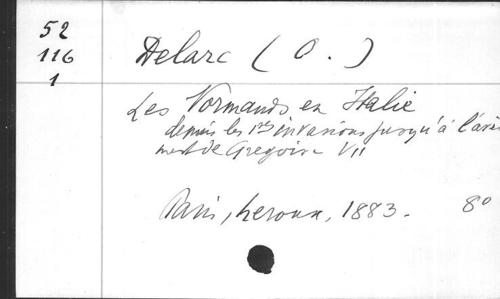 52
116
1
Delarc (O.)
Les Normands en Italie
depuis les 1res invasions jusqu'à l'avè
ment de Gregoire VII
Paris, Leroux, 1883. 8o